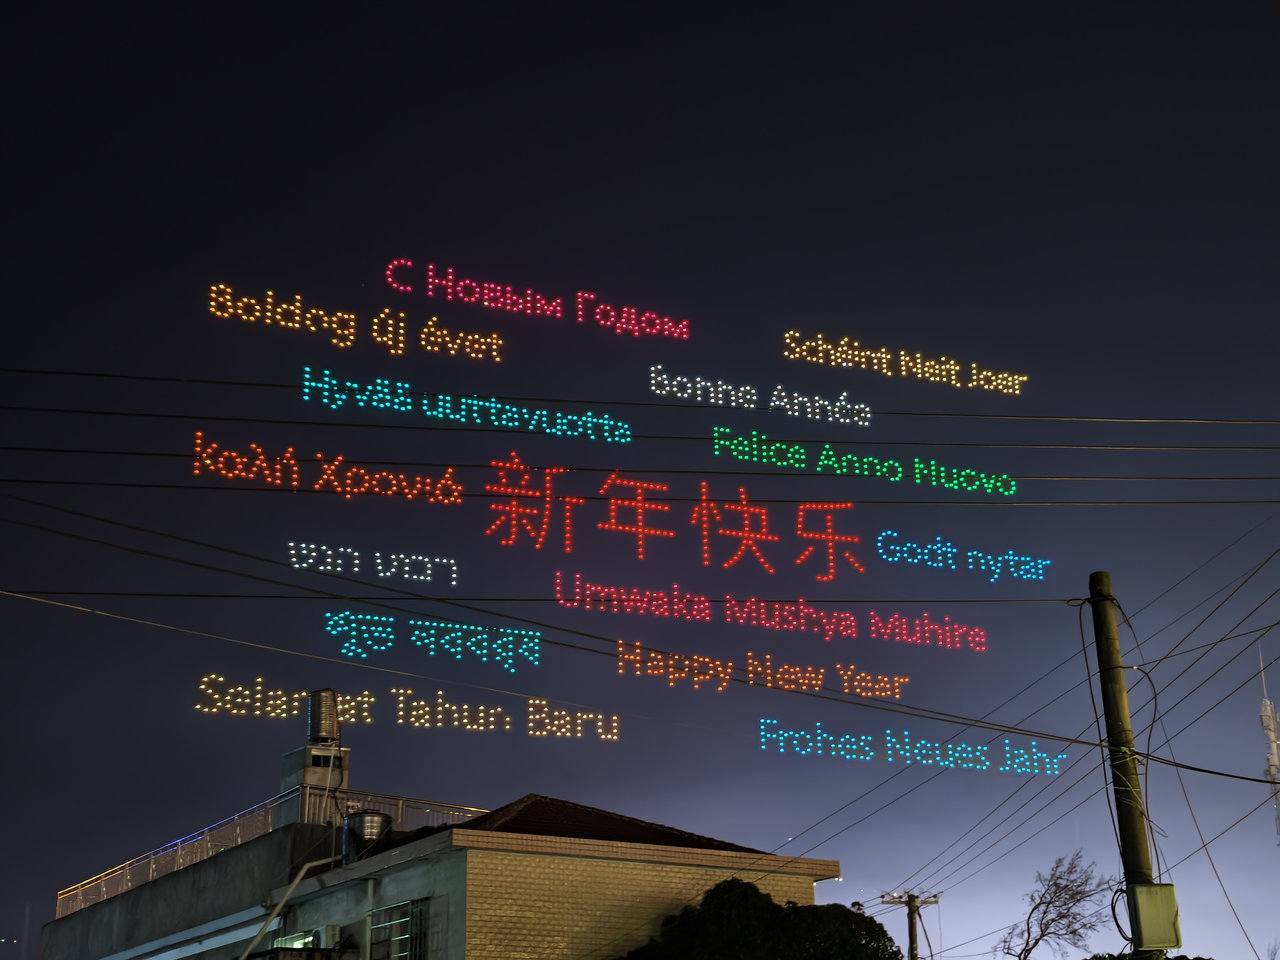 С Новым Годом
Boldog új évet
Schéint Neit Joer
Hyvää uuttavuotta
Bonne Année
Felice Anno Nuovo
καλή Χρονιά
新年快乐
Godt nytar
Umwaka Mushya Muhire
Happy New Year
Selamat Tahun Baru
Frohes Neues Jahr